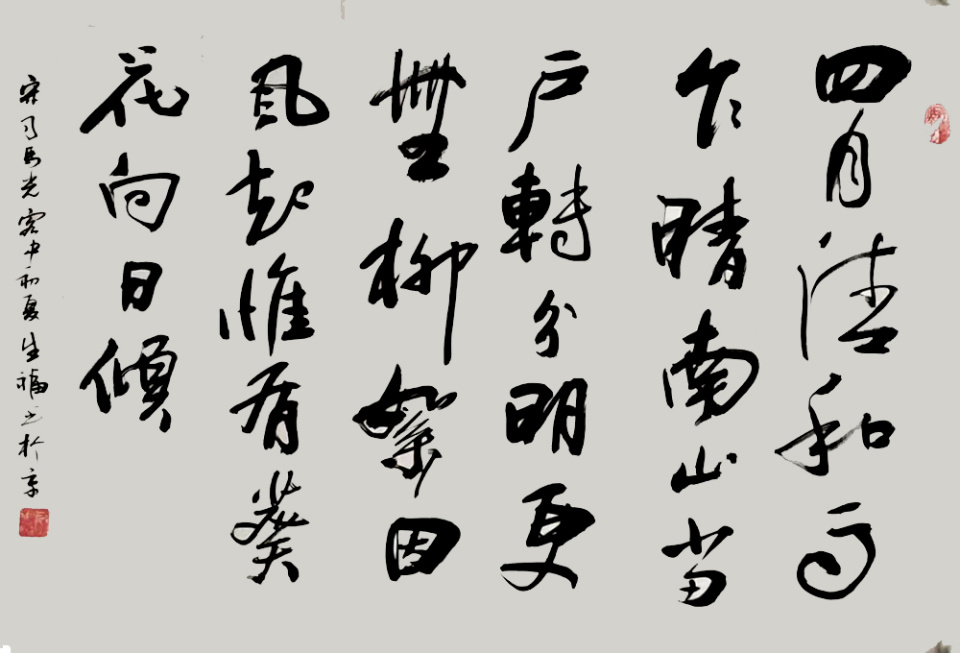 四月清和雨
乍晴南山当
戶轉分明更
無柳絮因
風起惟有葵
花向日傾
宋司馬光客中初夏生福书於京